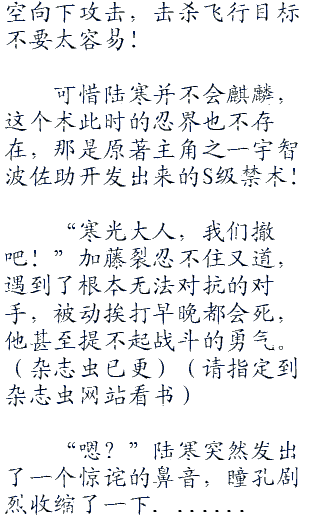 空向下攻击，击杀飞行目标
不要太容易！
可惜陆寒并不会麒麟，
这个术此时的忍界也不存
在，那是原著主角之一宇智
波佐助开发出来的S级禁术！
“寒光大人，我们撤
吧！”加藤裂忍不住又道，
遇到了根本无法对抗的对
手，被动挨打早晚都会死，
他甚至提不起战斗的勇气。
（杂志虫已更）（请指定到
杂志虫网站看书）
“嗯？”陆寒突然发出
了一个惊诧的鼻音，瞳孔剧
烈收缩了一下．．．．．．．